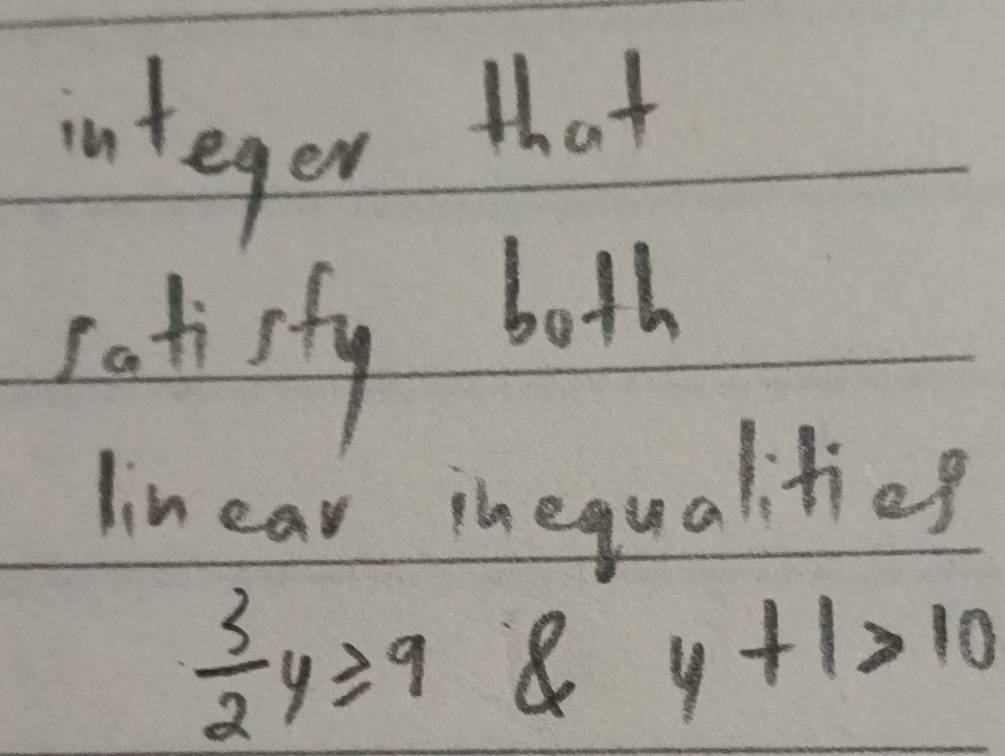 integer that
satisfy both
linear inequalities
3/2 y ≥ 9 & y + 1 > 10